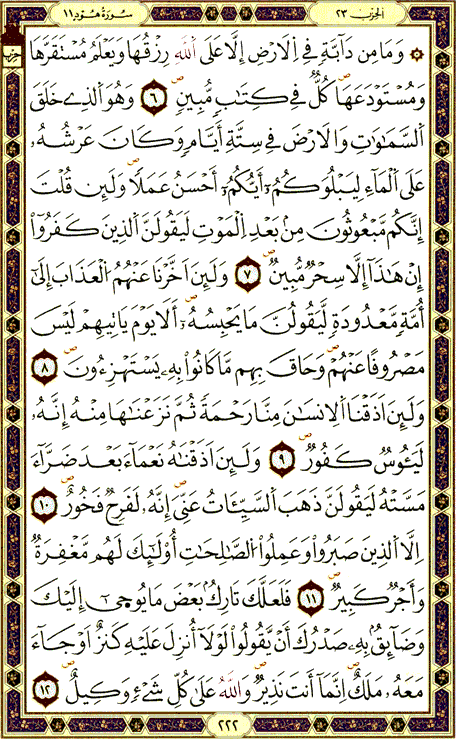 سُورَةُ هُود ١١
الحزب ٢٣
۞ وَمَا مِن دَآبَّةٖ فِي اِلَارْضِ إِلَّا عَلَى اَللَّهِ رِزْقُهَا وَيَعْلَمُ مُسْتَقَرَّهَا
وَمُسْتَوْدَعَهَا كُلّٞ فِي كِتَٰبٖ مُّبِينٖ ٦ وَهُوَ اَلذِے خَلَقَ
اَلسَّمَٰوَٰتِ وَالَارْضَ فِي سِتَّةِ أَيَّامٖ وَكَانَ عَرْشُهُۥ
عَلَى اَلْمَآءِ لِيَبْلُوَكُمُۥٓ أَيُّكُمُۥٓ أَحْسَنُ عَمَلاٗ وَلَئِن قُلْتَ
إِنَّكُم مَّبْعُوثُونَ مِنۢ بَعْدِ اِلْمَوْتِ لَيَقُولَنَّ اَلذِينَ كَفَرُوٓاْ
إِنْ هَٰذَآ إِلَّا سِحْرٞ مُّبِينٞ ٧ وَلَئِنَ اَخَّرْنَا عَنْهُمُ اُلْعَذَابَ إِلَىٰٓ
أُمَّةٖ مَّعْدُودَةٖ لَّيَقُولُنَّ مَا يَحْبِسُهُۥٓ أَلَا يَوْمَ يَاتِيهِمْ لَيْسَ
مَصْرُوفاً عَنْهُمْ وَحَاقَ بِهِم مَّا كَانُواْ بِهِۦ يَسْتَهْزِءُونَ ٨
وَلَئِنَ اَذَقْنَا اَلِانسَٰنَ مِنَّا رَحْمَةٗ ثُمَّ نَزَعْنَٰهَا مِنْهُ إِنَّهُۥ
لَيَـُٔوسٞ كَفُورٞ ٩ وَلَئِنَ اَذَقْنَٰهُ نَعْمَآءَ بَعْدَ ضَرَّآءَ
مَسَّتْهُ لَيَقُولَنَّ ذَهَبَ اَلسَّيِّـَٔاتُ عَنِّيَ إِنَّهُۥ لَفَرِحٞ فَخُورٌ ١٠
اِلَّا اَلذِينَ صَبَرُواْ وَعَمِلُواْ اُلصَّٰلِحَٰتِ أُوْلَٰٓئِكَ لَهُم مَّغْفِرَةٞ
وَأَجْرٞ كَبِيرٞ ١١ فَلَعَلَّكَ تَارِكُۢ بَعْضَ مَا يُوحَىٰٓ إِلَيْكَ
وَضَآئِقُۢ بِهِۦ صَدْرُكَ أَنْ يَّقُولُواْ لَوْلَآ أُنزِلَ عَلَيْهِ كَنزٌ اَوْ جَآءَ
مَعَهُۥ مَلَكٌ اِنَّمَآ أَنتَ نَذِيرٞ وَاللَّهُ عَلَىٰ كُلِّ شَےْءٖ وَكِيلٌ ١٢
٢٢٢